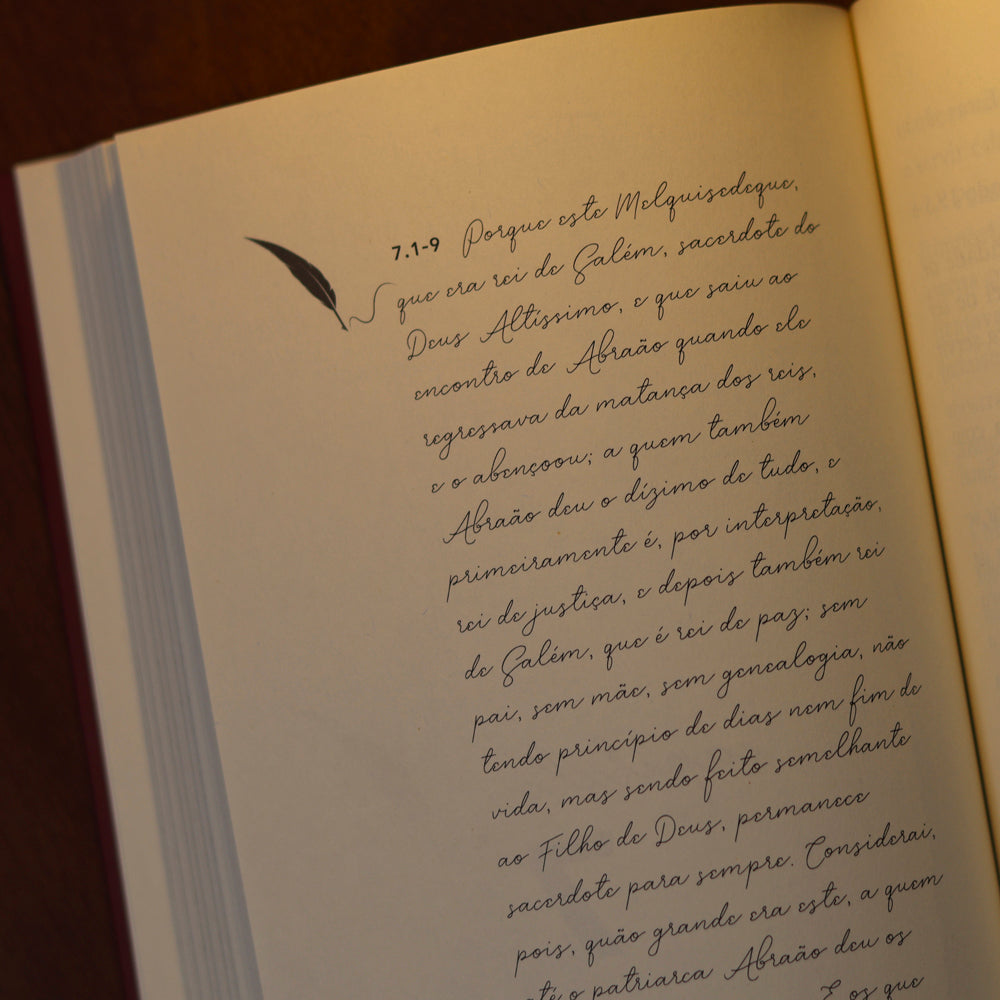 7.1-9 Porque este Melquisedeque,
que era rei de Salém, sacerdote do
Deus Altíssimo, e que saiu ao
encontro de Abraão quando ele
regressava da matança dos reis,
e o abençoou; a quem também
Abraão deu o dízimo de tudo, e
primeiramente é, por interpretação,
rei de justiça, e depois também rei
de Salém, que é rei de paz; sem
pai, sem mãe, sem genealogia, não
tendo princípio de dias nem fim de
vida, mas sendo feito semelhante
ao Filho de Deus, permanece
sacerdote para sempre. Considerai,
pois, quão grande era este, a quem
até o patriarca Abraão deu os
E os que